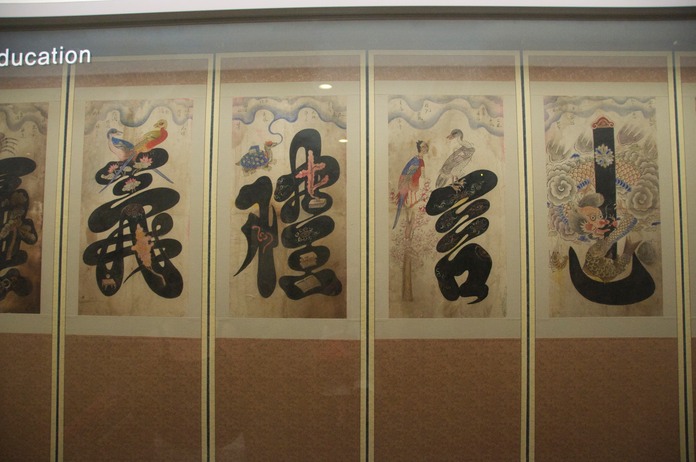 ducation
忠
信
禮
義